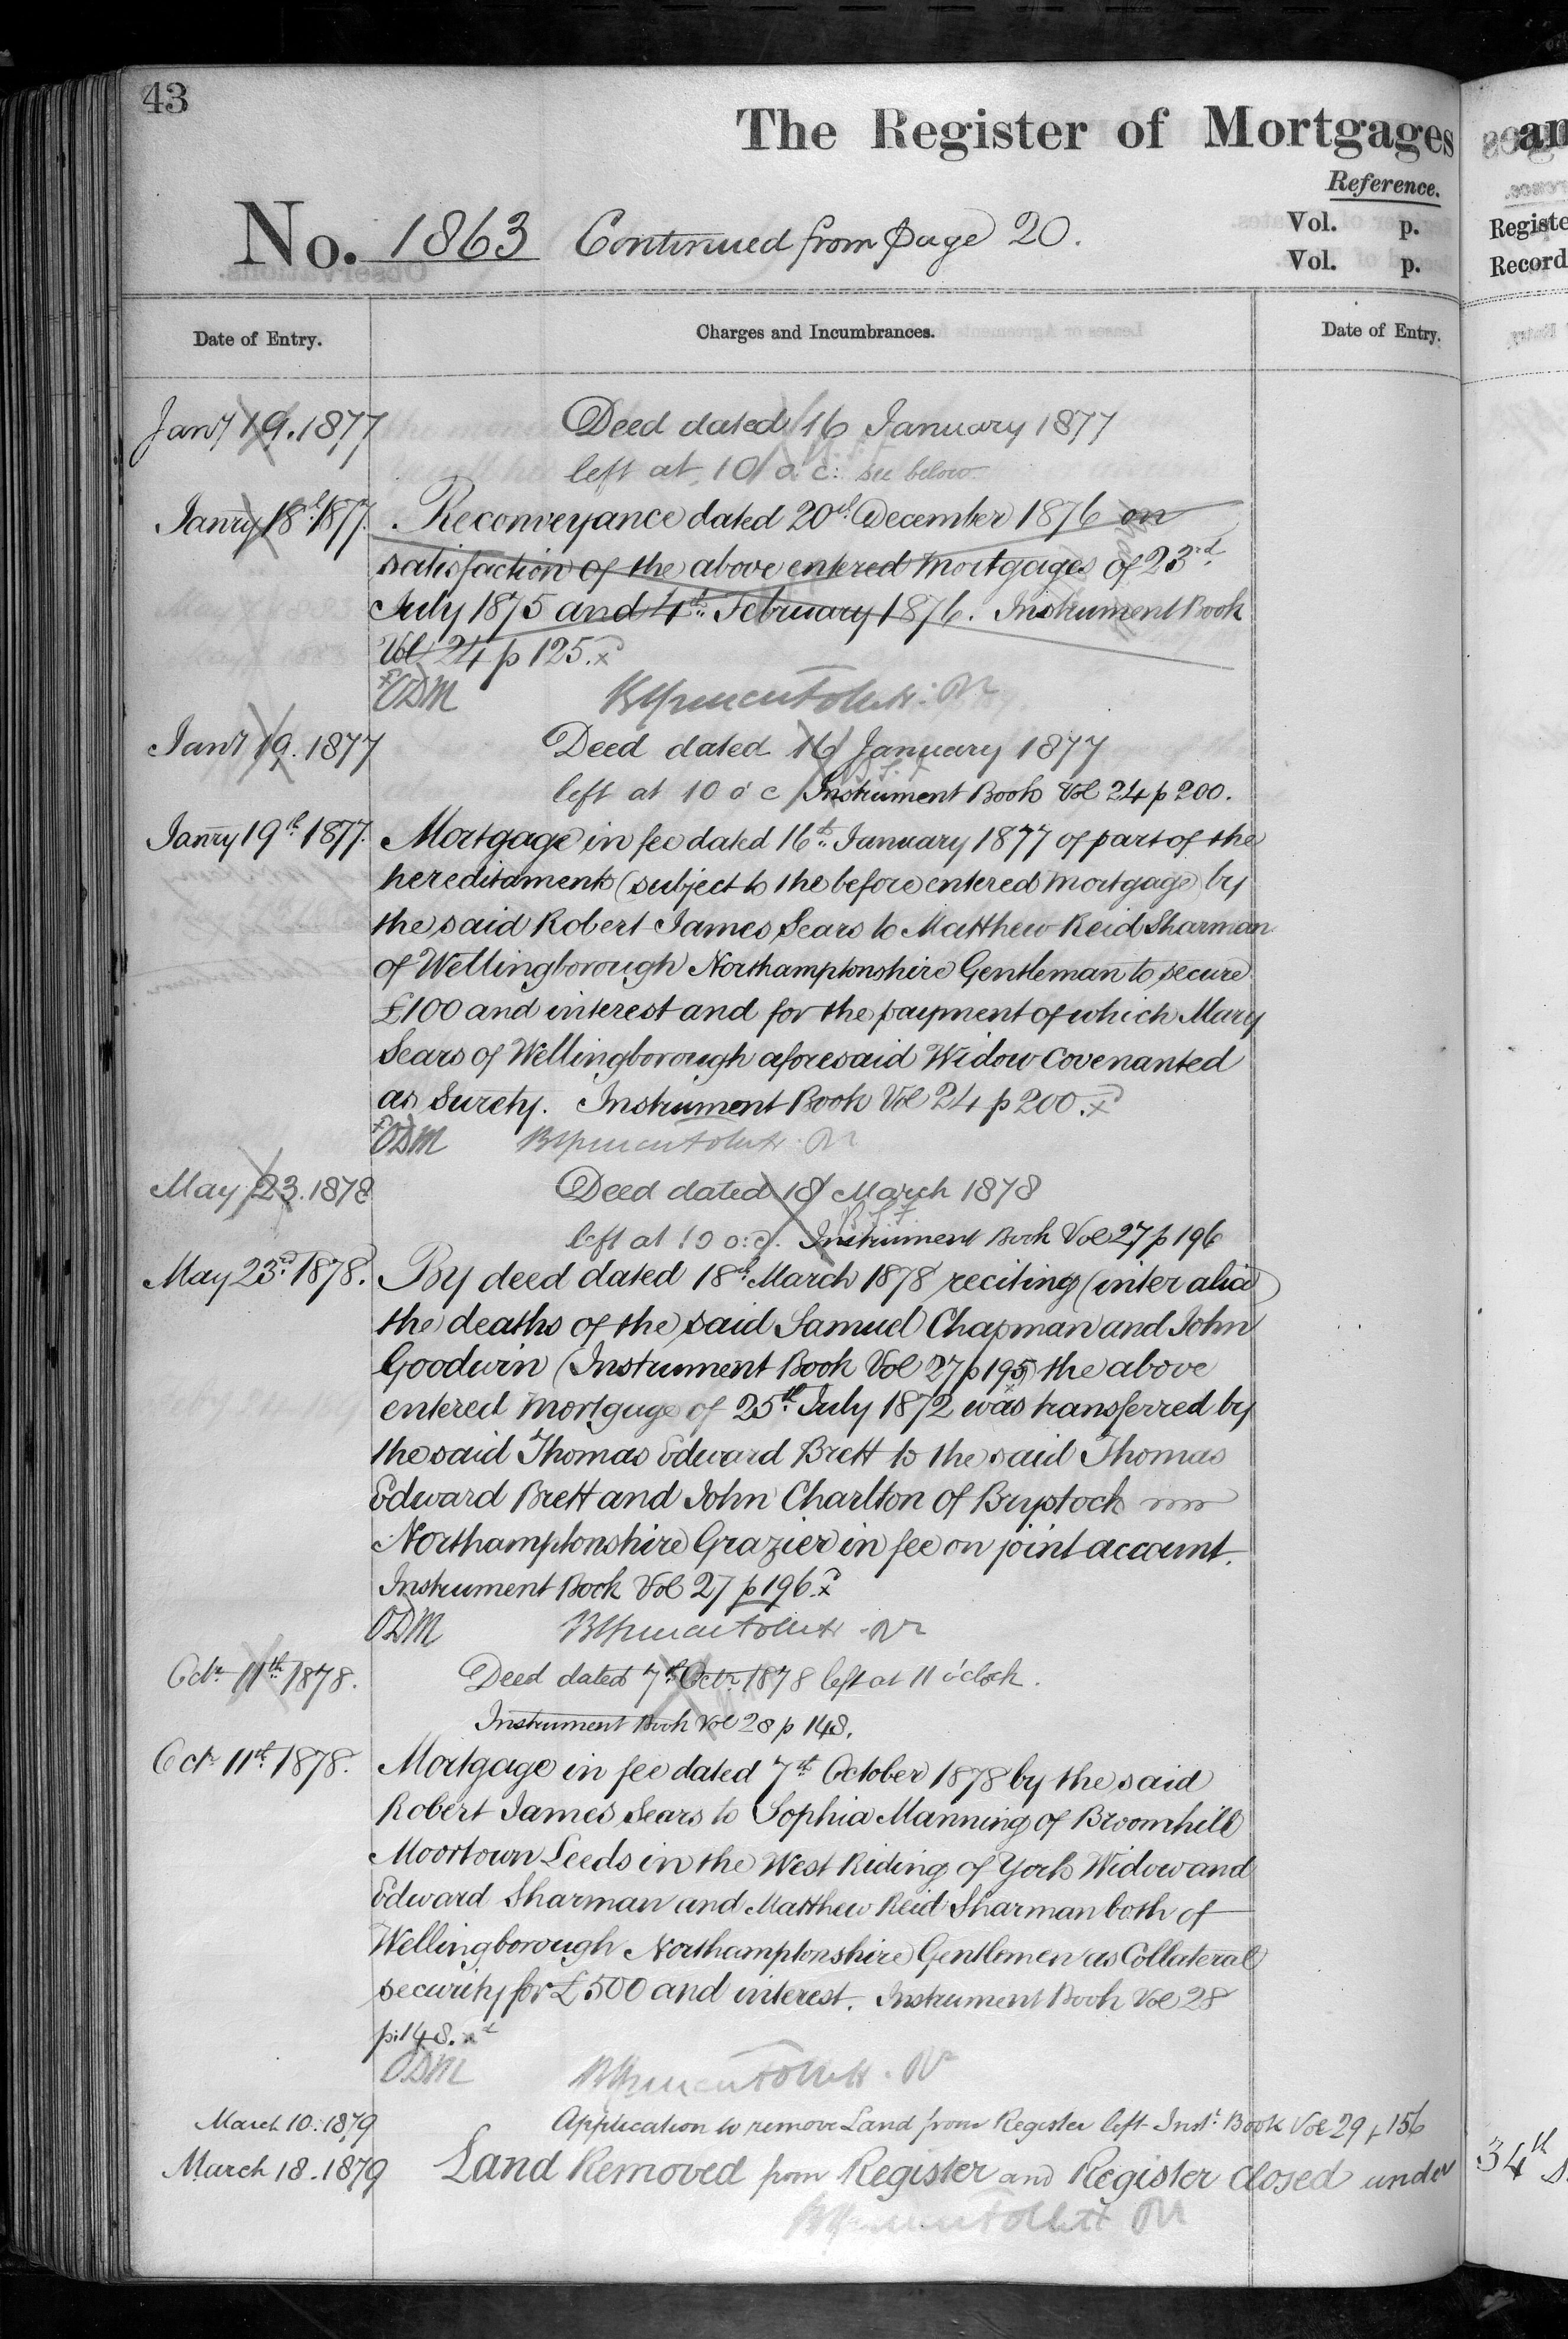 43
The Register of Mortgages
Reference.
No. 1863 Continued from page 20.
Vol. p.
Vol. p.
Registe
Record
Date of Entry.
Charges and Incumbrances.
Date of Entry.
Jany 19. 1877 Deed dated 16 January 1877
left at 10 o'c: see below
Janry 18th 1877. Reconveyance dated 20th December 1876 on
satisfaction of the above entered Mortgages of 23rd
July 1875 and 4th February 1876. Instrument Book
Vol 24 p 125. xd
ODM
Jany 19. 1877 Deed dated 16 January 1877
left at 10 o'c Instrument Book Vol 24 p 200.
Janry 19th 1877. Mortgage in fee dated 16th January 1877 of part of the
hereditaments (subject to the before entered Mortgage) by
the said Robert James Sears to Matthew Reid Sharman
of Wellingborough Northamptonshire Gentleman to secure
£100 and interest and for the payment of which Mary
Sears of Wellingborough aforesaid Widow Covenanted
as Surety. Instrument Book Vol 24 p 200. xd
ODM
May 23. 1878 Deed dated 18 March 1878
left at 10 o:c. Instrument Book Vol 27 p 196
May 23rd 1878. By deed dated 18th March 1878 reciting (inter alia)
the deaths of the said Samuel Chapman and John
Goodwin (Instrument Book Vol 27 p 195) the above
entered Mortgage of 25th July 1872 was transferred by
the said Thomas Edward Brett to the said Thomas
Edward Brett and John Charlton of
Northamptonshire Grazier in fee on joint account.
Instrument Book Vol 27 p 196. xd
ODM
Octr 11th 1878. Deed dated 7th Octr 1878 left at 11 o'clock.
Instrument Book Vol 28 p 148.
Octr 11th 1878. Mortgage in fee dated 7th October 1878 by the said
Robert James Sears to Sophia Manning of Broomhill
Moortown Leeds in the West Riding of York Widow and
Edward Sharman and Matthew Reid Sharman both of
Wellingborough Northamptonshire Gentlemen as Collateral
security for £500 and interest. Instrument Book Vol 28
p: 148. xd
ODM
March 10. 1879 Application to remove Land from Register left Inst. Book Vol 29 p 156
March 18. 1879 Land Removed from Register and Register closed under 34th